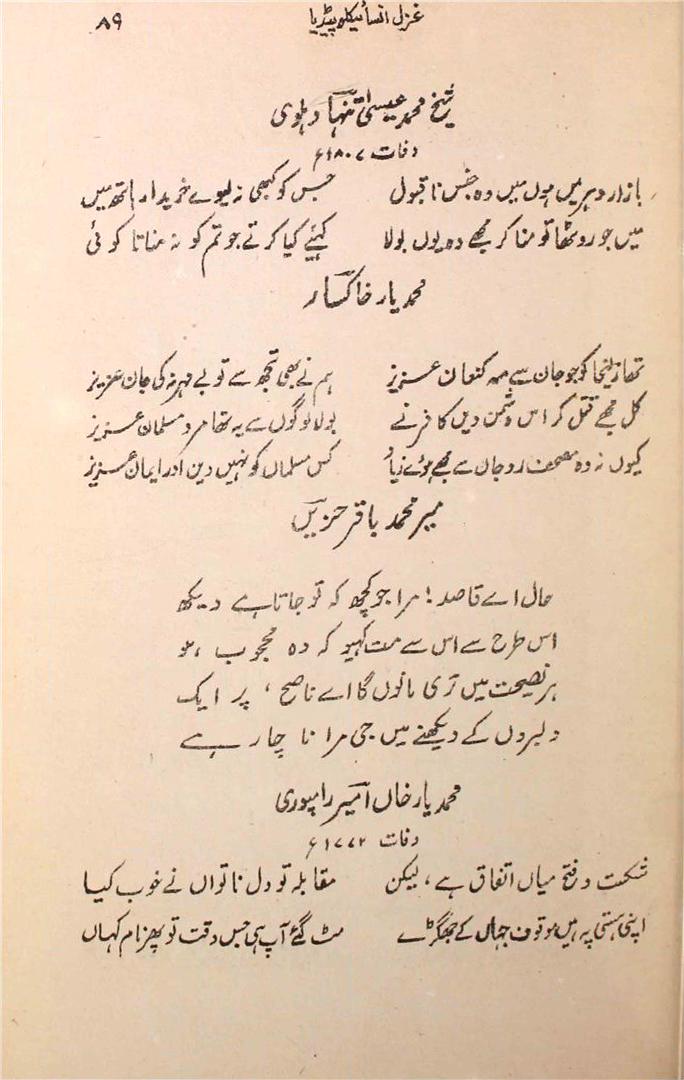 غزل انسائیکلوپیڈیا ۸۹
شیخ محمد عیسیٰ تنہا دہلوی
وفات ۱۸۰۷ء
بازار دہر میں ہوں میں وہ جنس نا قبول جس کو کبھی نہ لیوے خریدار ہاتھ میں
میں جو روٹھا تو منا کر مجھے وہ یوں بولا کہیے کیا کرتے جو تم کو نہ مناتا کوئی
محمد یار خاکسار
تھا زلیخا کو جو جان سے مہ کنعان عزیز ہم نے بھی تجھ سے تو بے مہر نہ کی جان عزیز
کل مجھے قتل کر اس دشمن دیں کافر نے بولا لوگوں سے یہ تھا مرد مسلمان عزیز
کیوں نہ وہ مصحف رو جاں سے مجھے ہوئے کس مسلماں کو نہیں دین اور ایمان عزیز
میر محمد باقر حزیں
حال اے قاصد! مرا جو کچھ کہ تو جاتا ہے دیکھ
اس طرح سے اس سے مت کہیو کہ وہ محجوب ہو
ہر نصیحت میں تری مانوں گا اے ناصح، پر ایک
دلبروں کے دیکھنے میں جی مرا نا چار ہے
محمد یار خاں امیر رامپوری
وفات ۱۷۷۲ء
شکست و فتح میاں اتفاق ہے، لیکن مقابلہ تو دل ناتواں نے خوب کیا
اپنی ہستی پہ ہیں موقوف جہاں کے جھگڑے مٹ گئے آپ ہی جس وقت تو پھر نام کہاں